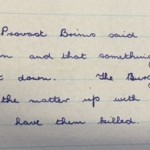 Provost Brims said
and that something
down. The
the matter up with
have them killed